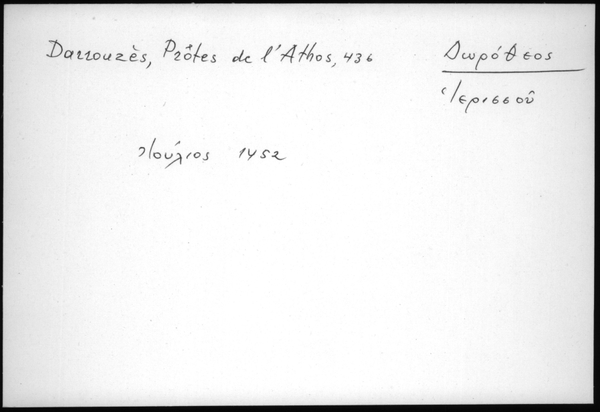 Darrouzès, Prôtes de l'Athos, 436
Δωρόθεος
Ἱερισσοῦ
Ἰούλιος 1452